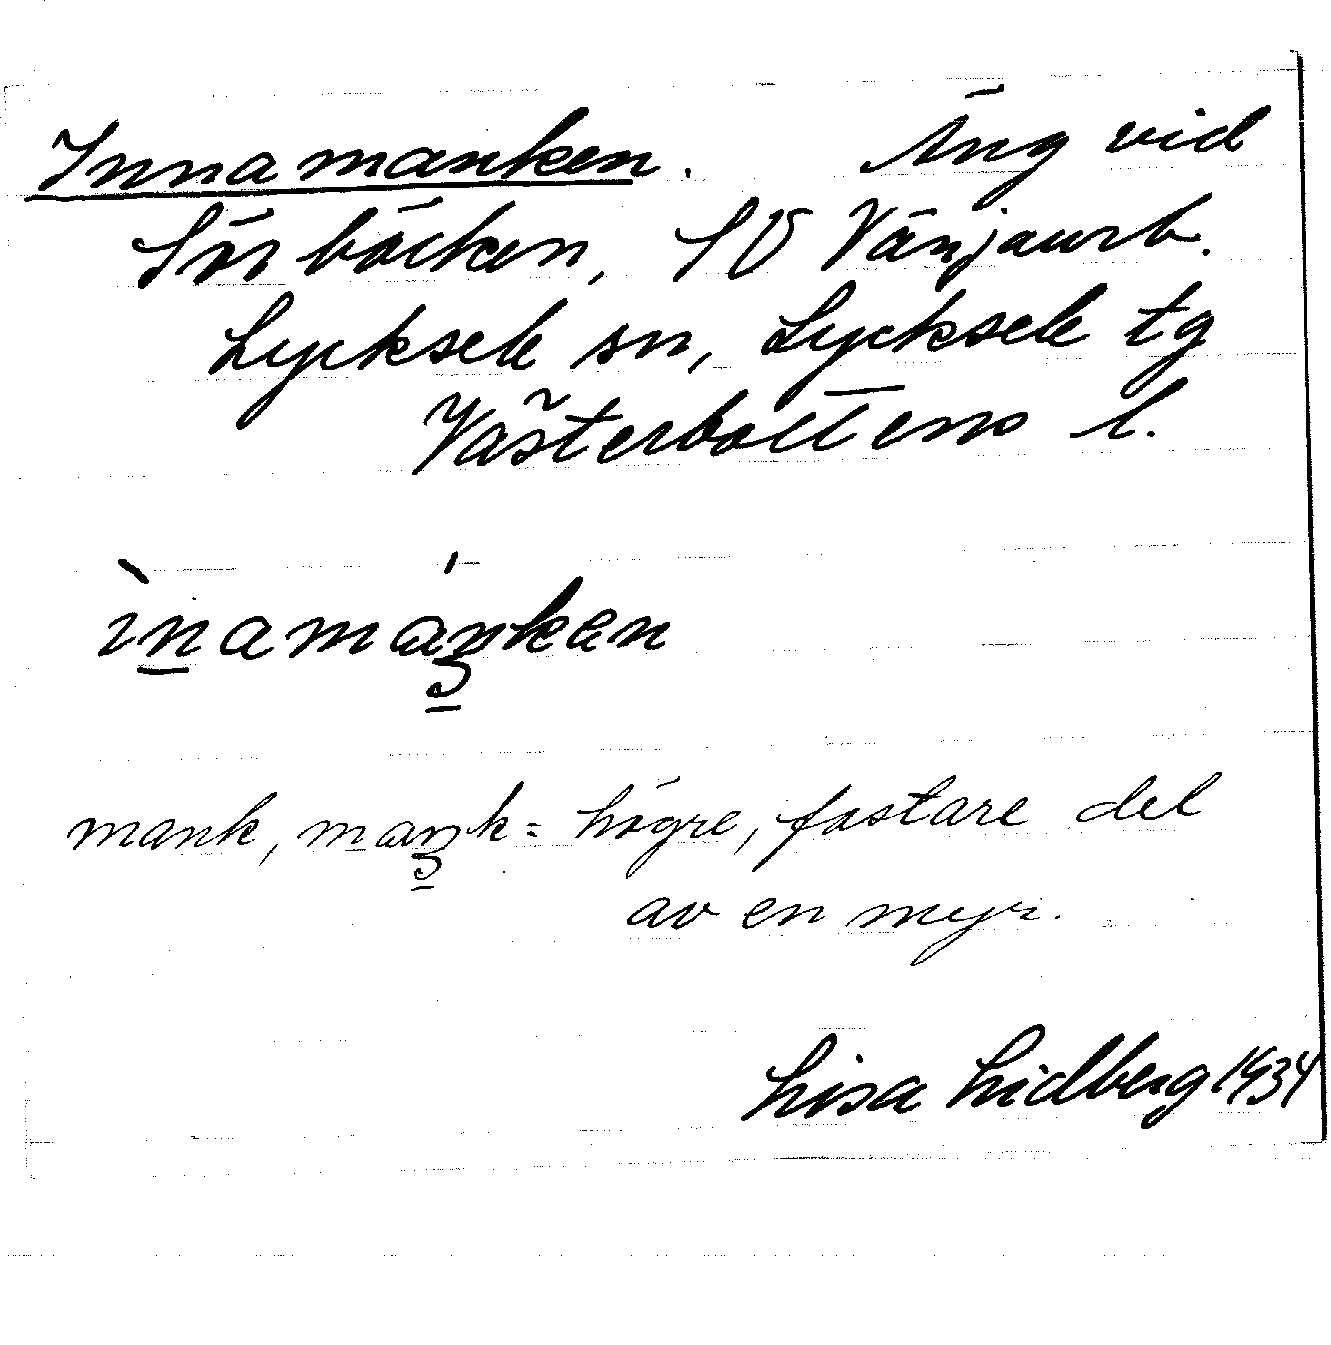 Innamanken. Äng vid
Sörbäcken, SV Vänjaurb.
Lycksele sn, Lycksele tg
Västerbottens l.
ìnamánken
mank, mank = högre, fastare del
av en myr.
Lisa Lidberg 1934